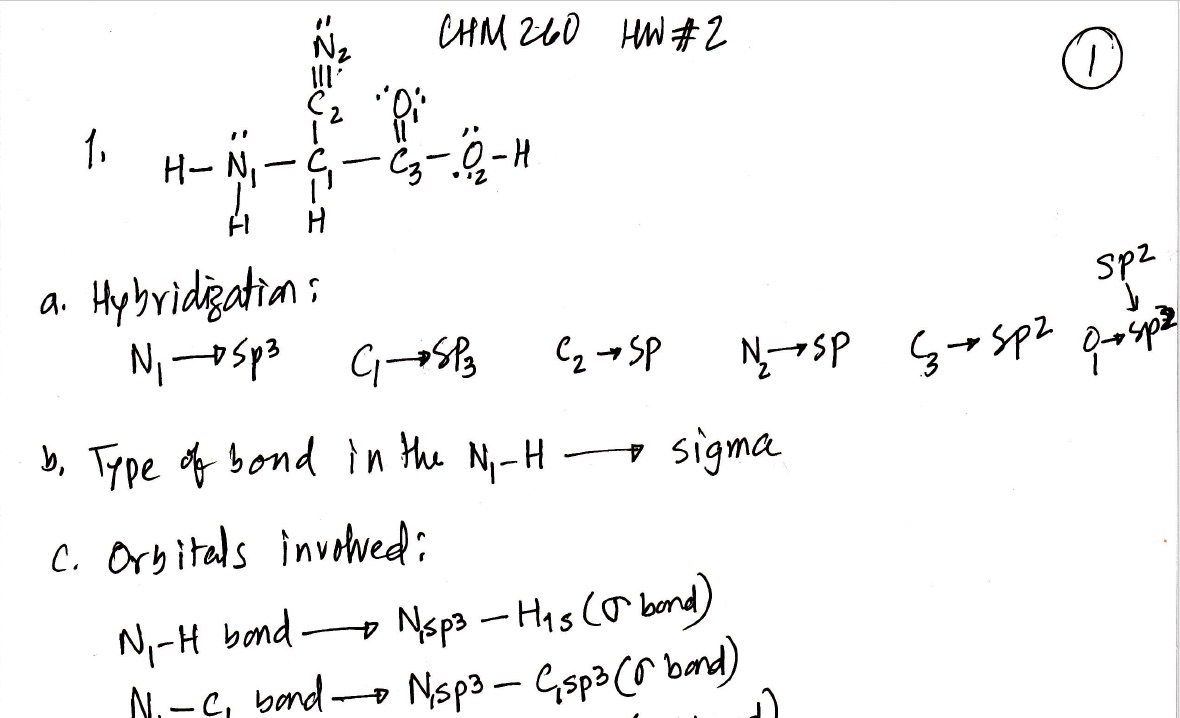 CHM 260 HW #2
1
1.
N̈2
≡
C2 :O1:
| ||
H–N̈1–C1–C3–Ö2–H
| |
H H
a. Hybridization:
sp2
N1 → sp3 C1 → SP3 C2 → SP N2 → SP C3 → SP2 O1 → sp2
b. Type of bond in the N1–H → sigma
C. Orbitals involved:
N1–H bond → N1sp3 – H1s (σ bond)
N1–C1 bond → N1sp3 – C1sp3 (σ bond)